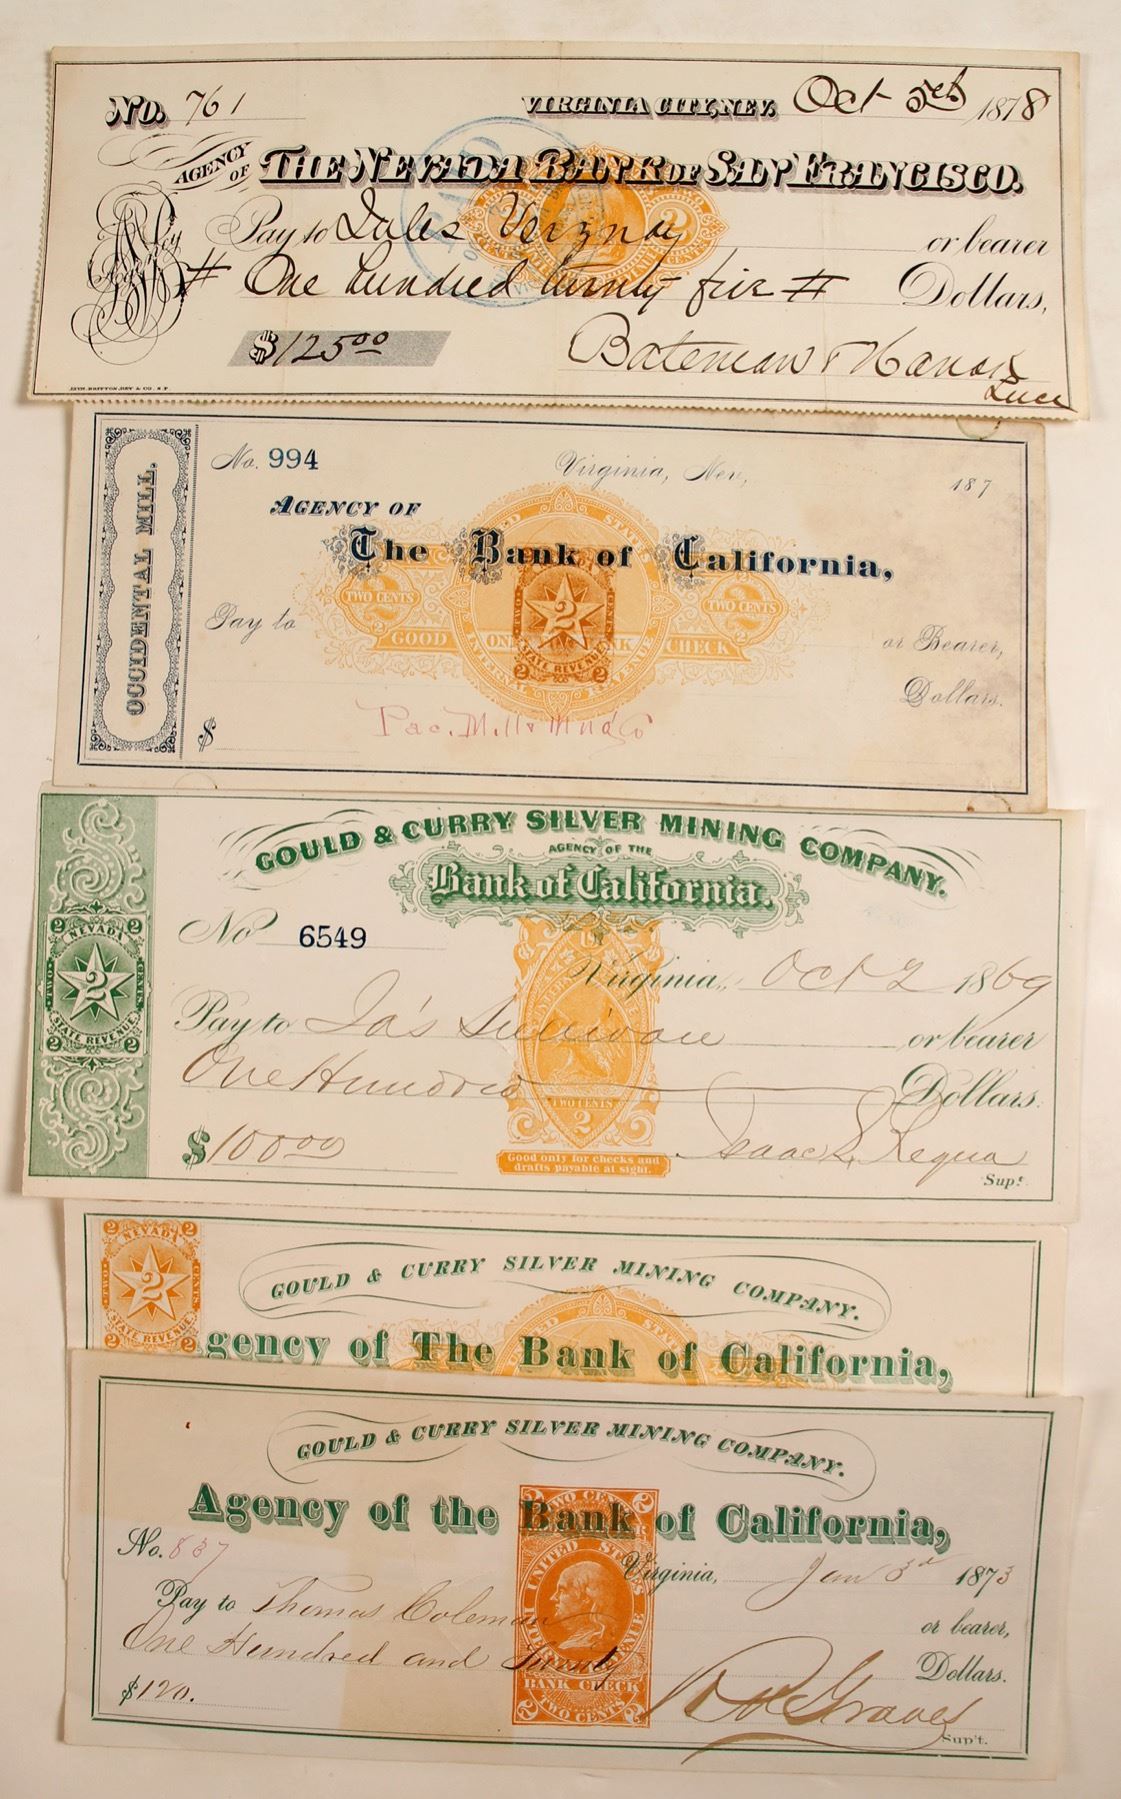 No. 761 VIRGINIA CITY, NEV. Oct 5th 1878
AGENCY OF THE NEVADA BANK OF SAN FRANCISCO.
PAID
Pay to Jules or bearer
# One hundred twenty five # Dollars,
2
$125.00
Bateman &
LITH. BRITTON, REY & CO. S.F.
OCCIDENTAL MILL.
No. 994 Virginia, Nev, 187
AGENCY OF
The Bank of California,
UNITED STATES
TWO CENTS TWO CENTS
GOOD ONLY BANK CHECK
TWO 2 CENTS
STATE REVENUE
2 2
INTERNAL REVENUE
Pay to or Bearer,
Dollars.
$
Pac. Mill & Mng Co
GOULD & CURRY SILVER MINING COMPANY.
AGENCY OF THE
Bank of California.
2 NEVADA 2
TWO 2 CENTS
STATE REVENUE
2 2
No 6549
Virginia, Oct 2 1869
Pay to Ja's Sullivan or bearer
One Hundred Dollars.
TWO CENTS
2
$100.00
Isaac L. Requa
Supt.
Good only for checks and
drafts payable at sight.
2 NEVADA 2
TWO 2 CENTS
STATE REVENUE
2 2
GOULD & CURRY SILVER MINING COMPANY.
UNITED STATES
Agency of The Bank of California,
GOULD & CURRY SILVER MINING COMPANY.
Agency of the Bank of California,
No. 837 Virginia, Jan 3d 1873
2 TWO CENTS 2
UNITED STATES
INTERNAL REVENUE
BANK CHECK
2 TWO CENTS 2
Pay to Thomas Coleman or bearer,
One Hundred and Twenty Dollars.
$120.
Graves
Sup't.